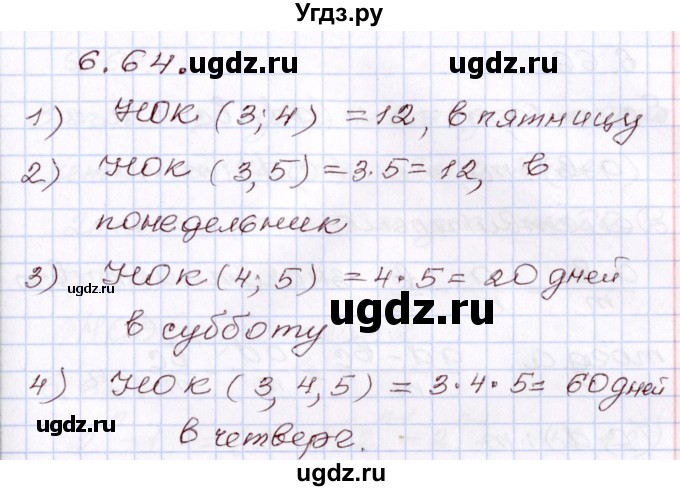 Угдз.ру
6.64. ugdz.ru ugdz.ru
1) НОК (3; 4) = 12, в пятницу
2) НОК (3, 5) = 3·5 = 12, в
понедельник
3) НОК (4; 5) = 4·5 = 20 дней
ugdz.ru ugdz.ru
в субботу
4) НОК (3, 4, 5) = 3·4·5 = 60 дней
ugdz.ru ugdz.ru
в четверг.
ugdz.ru